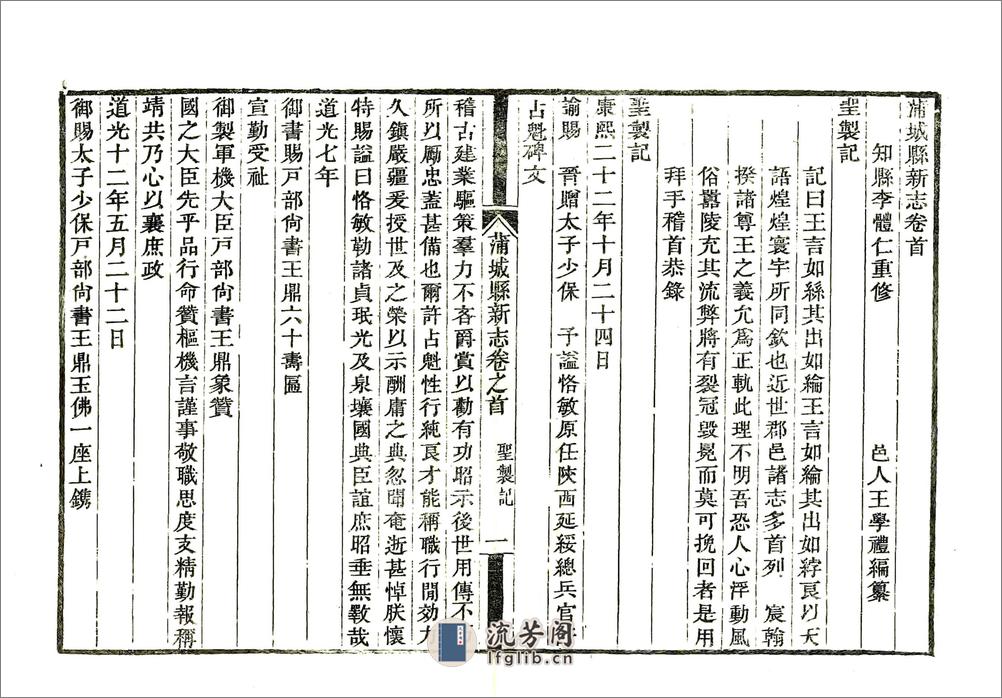 蒲城縣新志卷首
知縣李體仁重修　邑人王學禮編纂
聖製記
記曰王言如絲其出如綸王言如綸其出如綍良以天
語煌煌寰宇所同欽也近世郡邑諸志多首列　宸翰
揆諸尊王之義允爲正軌此理不明吾恐人心浮動風
俗囂陵充其流弊將有裂冠毀冕而莫可挽回者是用
拜手稽首恭錄
聖製記
康熙二十二年十月二十四日
諭賜　晉贈太子少保　予謚恪敏原任陝西延綏總兵官許
占魁碑文
蒲城縣新志卷之首　聖製記　一
稽古建業驅策羣力不吝爵賞以勸有功昭示後世用傳不
所以勵忠蓋甚備也爾許占魁性行純良才能稱職行間効力
久鎭嚴疆爰授世及之榮以示酬庸之典忽聞奄逝甚悼朕懷
特賜謚曰恪敏勒諸貞珉光及泉壤國典臣誼庶昭垂無斁哉
道光七年
御書賜戸部尚書王鼎六十壽匾
宣勤受祉
御製軍機大臣戸部尚書王鼎象贊
國之大臣先乎品行命贊樞機言謹事敬職思度支精勤報稱
靖共乃心以襄庶政
道光十二年五月二十二日
御賜太子少保戸部尚書王鼎玉佛一座上鐫
流芳阁
lfglib.cn